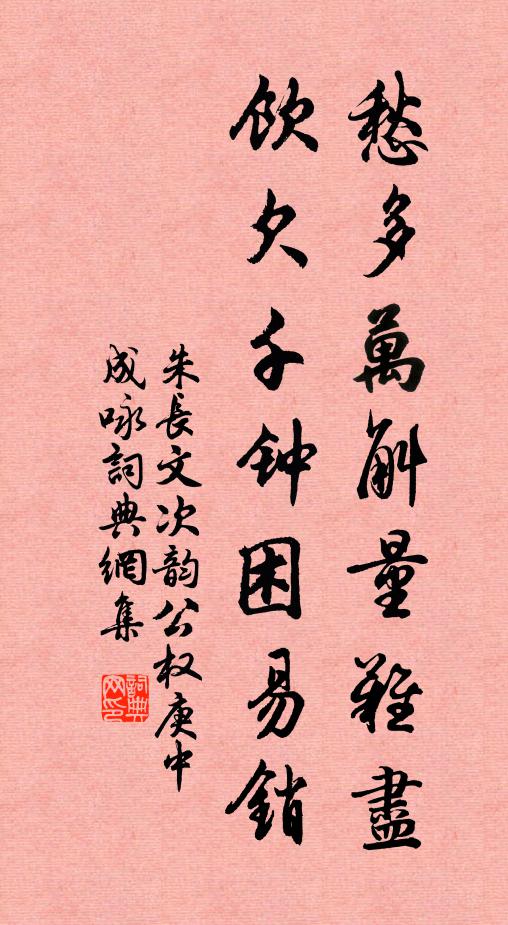 愁多萬斛量難盡
飲欠千钟困易銷
朱長文次韵公权庚中
成咏詞典網集
詞典网印